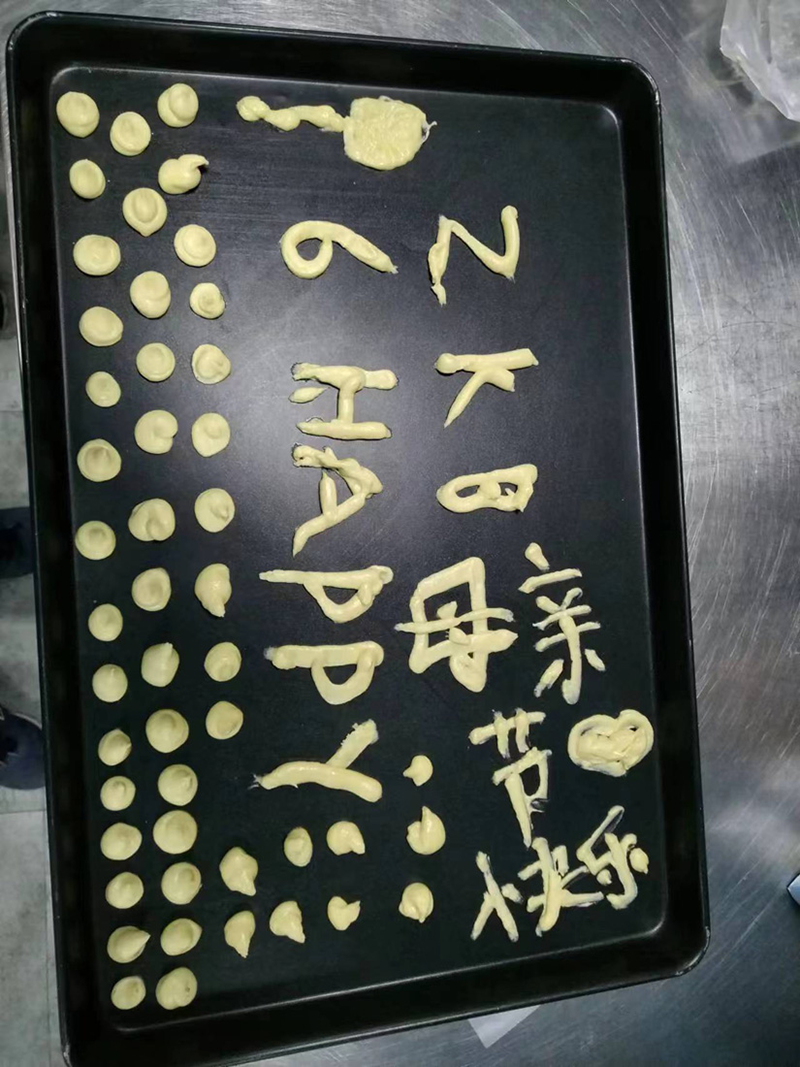 ZKB 母亲节快乐
6 HAPPY